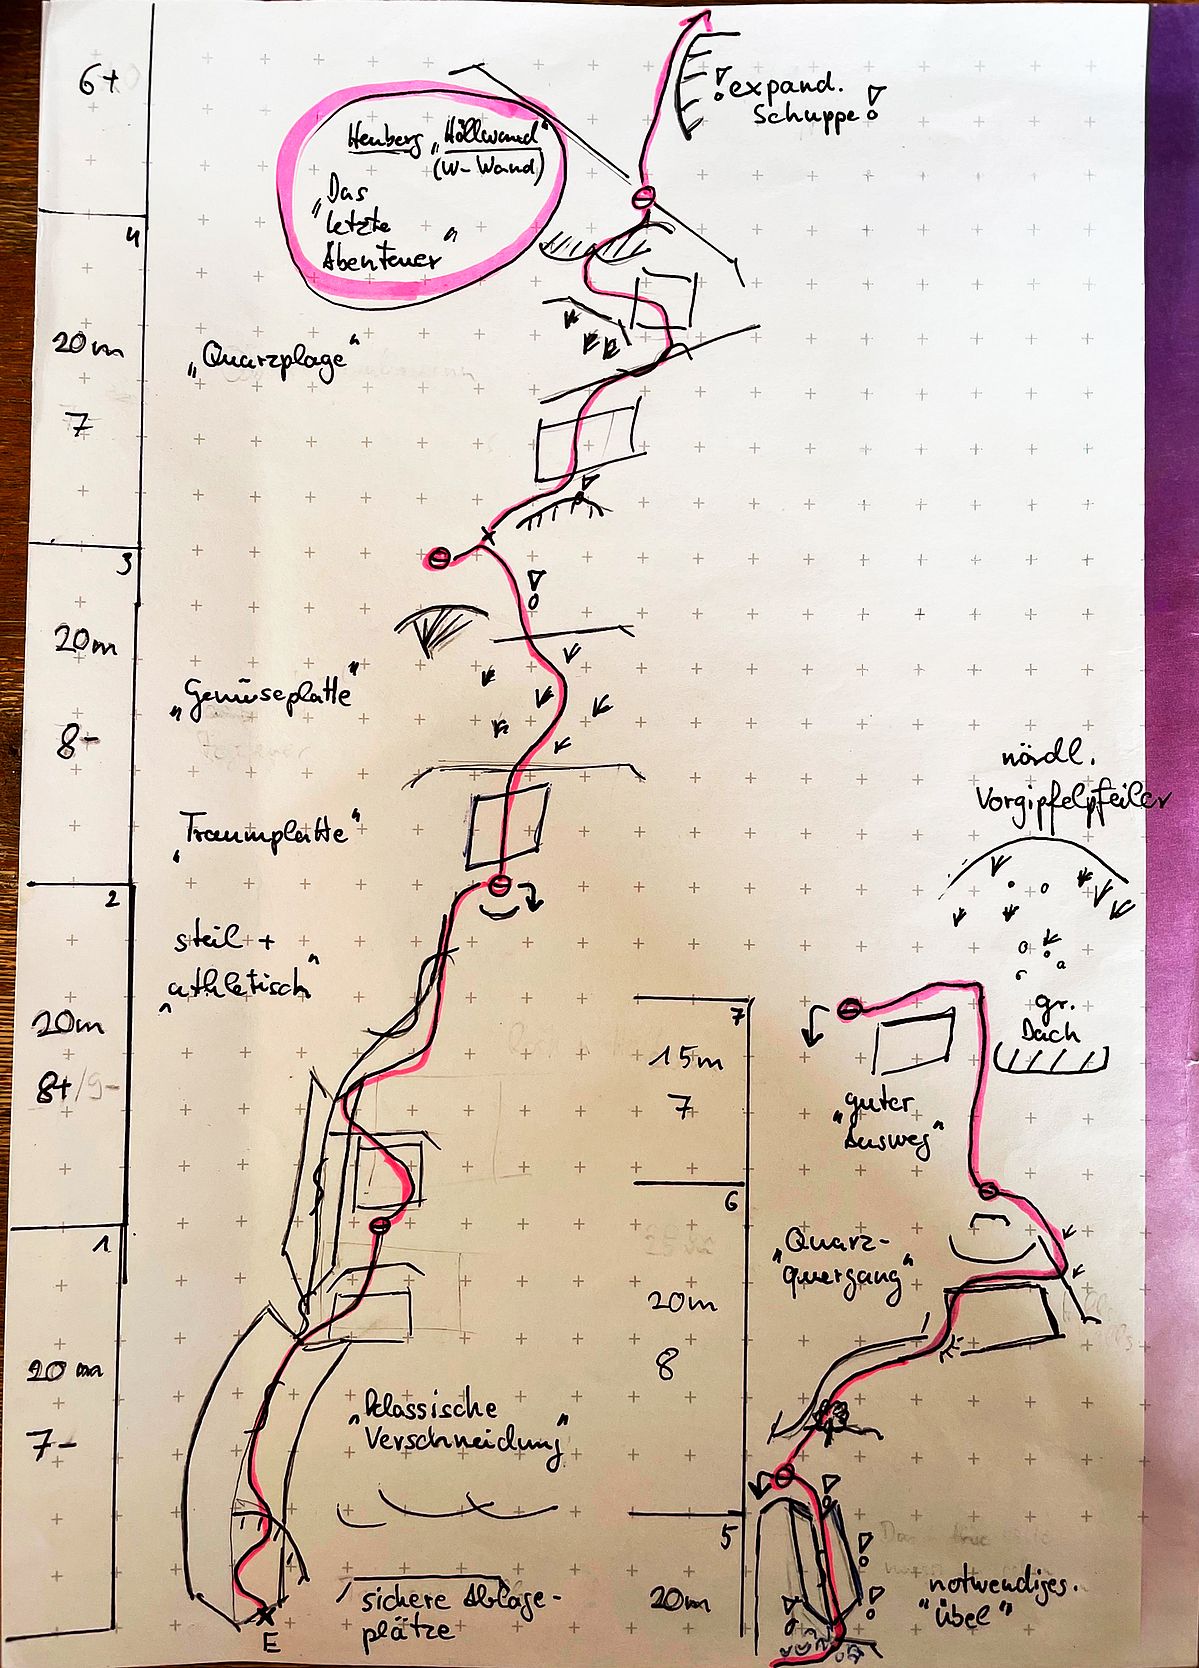 6+
! expand.
Schuppe !
Heuberg „Höllwand"
(W-Wand)
„Das
letzte
Abenteuer"
4
20m
„Quarzplage"
7
3
20m
„Gemüseplatte"
8-
„Traumplatte"
2
steil +
„athletisch"
20m
8+/9-
1
20m
7-
„klassische
Verschneidung"
sichere Ablage-
plätze
E
nördl.
Vorgipfelpfeiler
gr.
Dach
7
15m
7
„guter
Ausweg"
6
„Quarz-
quergang"
20m
8
5
20m
notwendiges
„Übel"